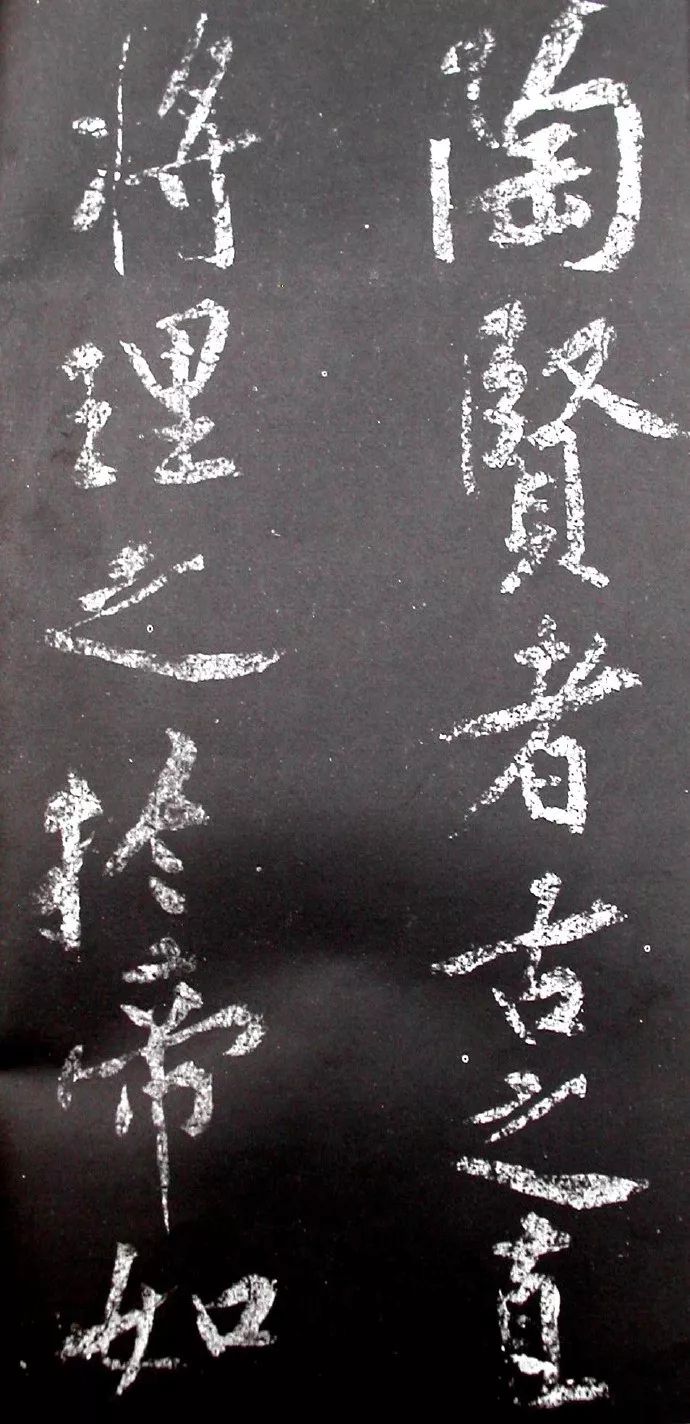 陶賢者古之直
將理之於帝如